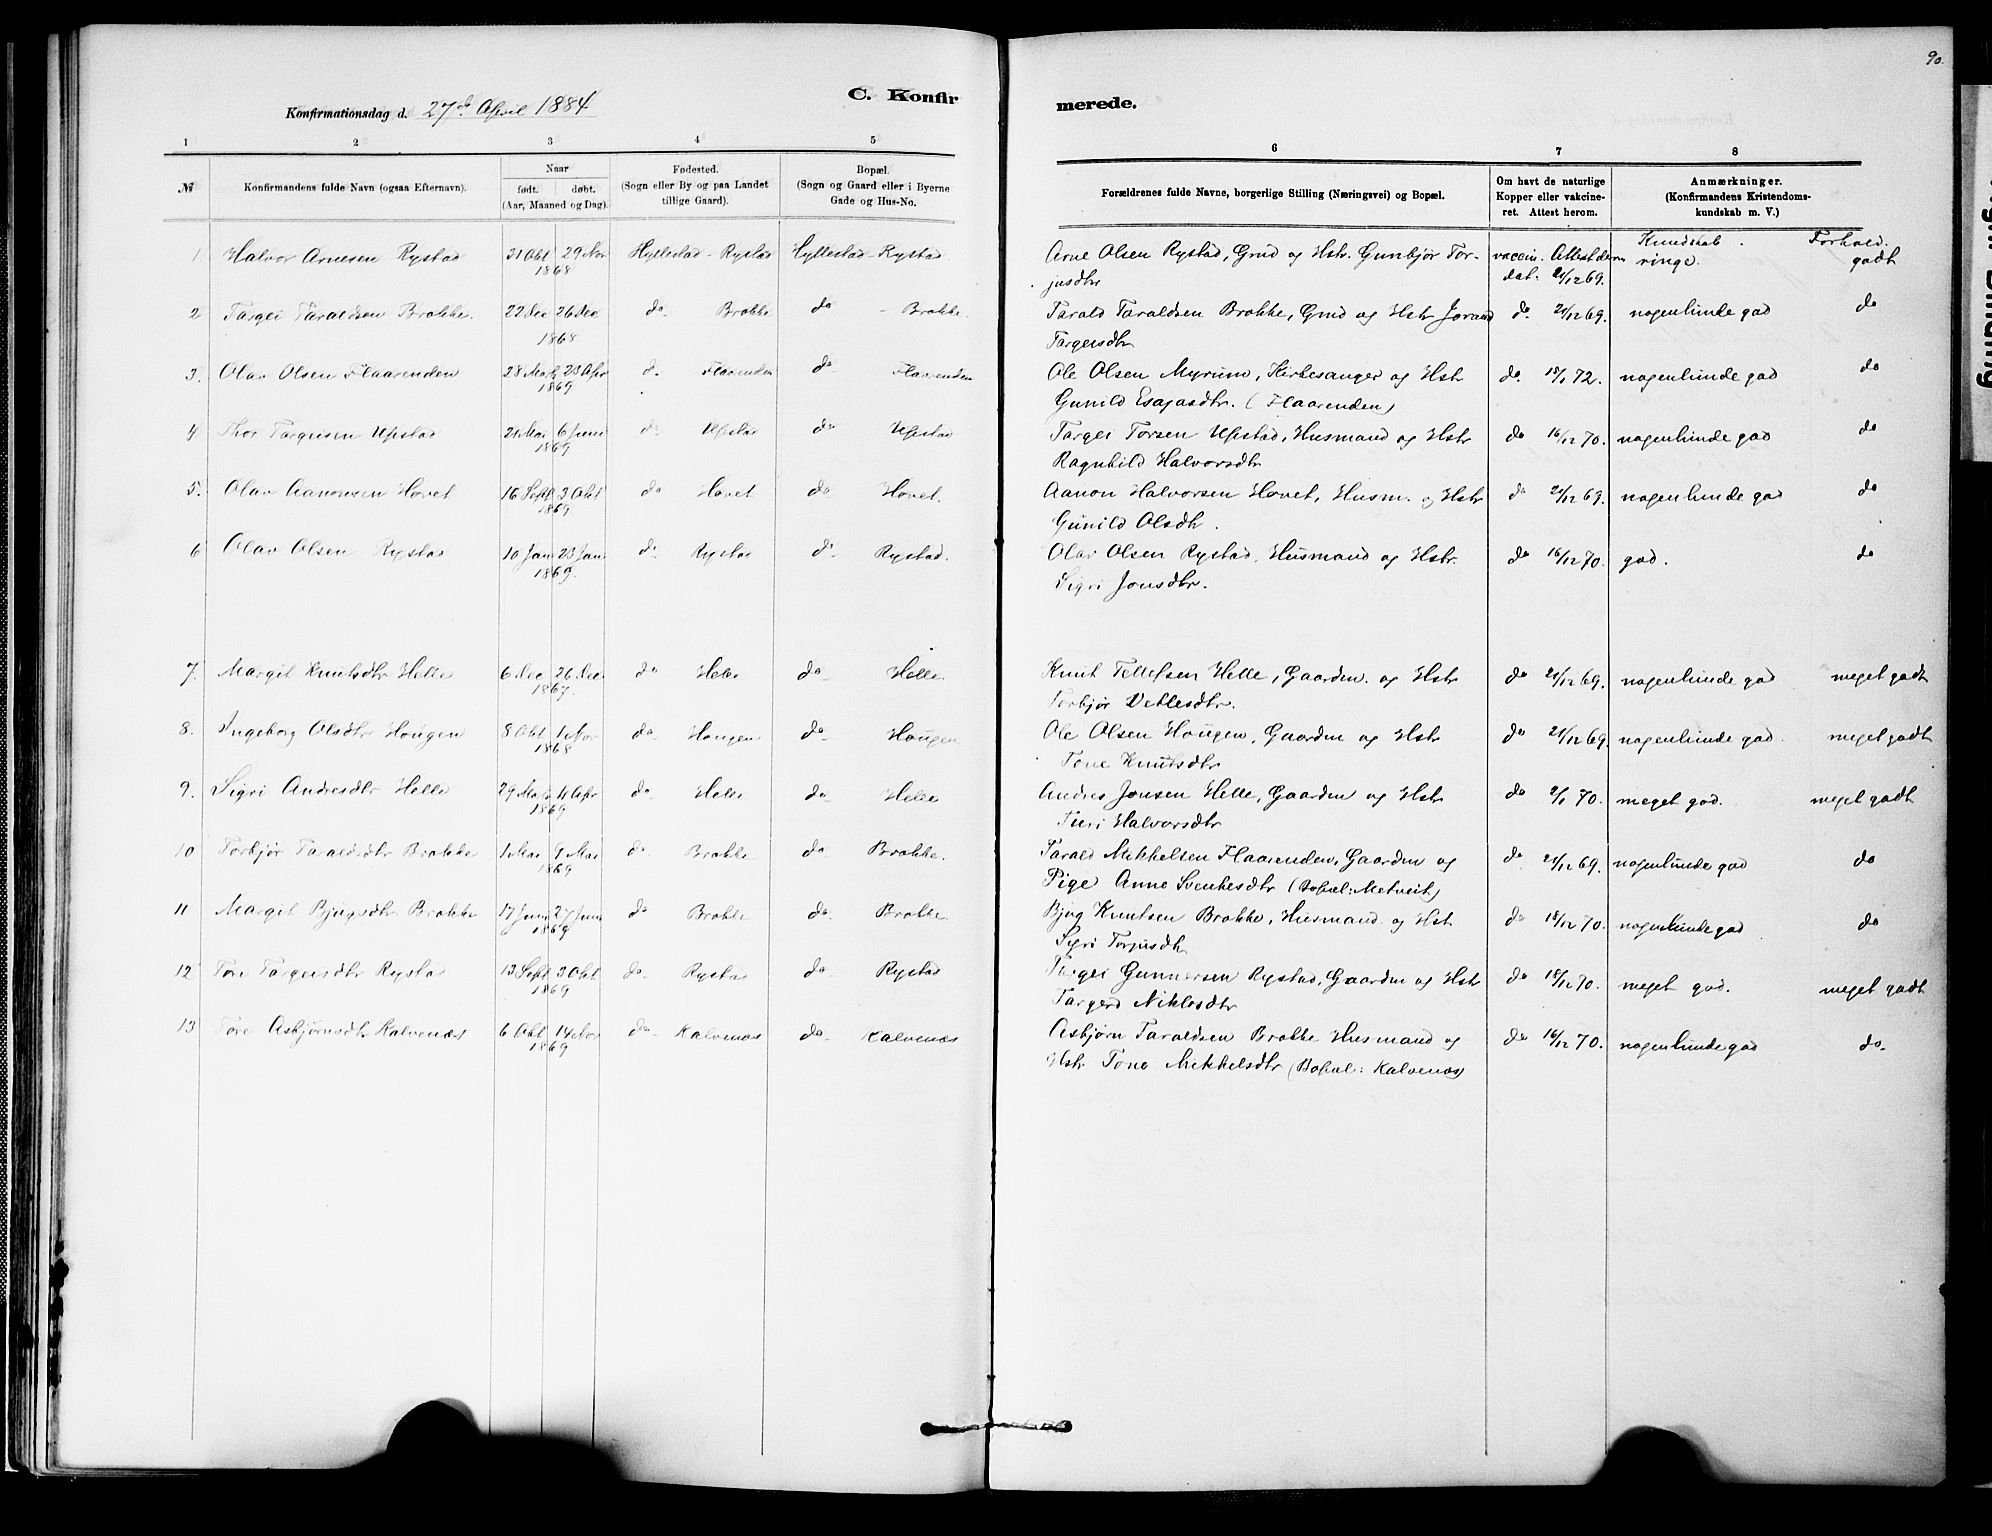 90.
C. Konfir
merede.
Konfirmationsdag d. 27de April 1884
1 2 3 4 5 6 7 8
№ Konfirmandens fulde Navn (ogsaa Efternavn). Naar født. døbt. (Aar, Maaned og Dag). Fødested. (Sogn eller By og paa Landet tillige Gaard). Bopæl. (Sogn og Gaard eller i Byerne Gade og Hus-No. Forældrenes fulde Navne, borgerlige Stilling (Næringsvei) og Bopæl. Om havt de naturlige Kopper eller vakcineret. Attest herom. Anmærkninger. (Konfirmandens Kristendomskundskab m. V.)
Kundskab. Forhold.
1. Halvor Arnesen Rystad 31 Okt 29 Nov Hyllestad - Rystad Hyllestad - Rystad. Arne Olsen Rystad, Grud og Hstr. Gunbjør Tor- vaccin. Attest derom ringe. godt
1868 jusdtr dat. 21/12 69.
2 Targei Taraldsen Brokke. 22 Dec 26 Dec do Brokke do - Brokke. Tarald Taraldsen Brokke, Grud og Hstr Joran do. 21/12 69. nogenlunde god do
1868 Targeisdtr
3. Olav Olsen Flaarenden 28 Mart 23 Apr do Flaarenden do Flaarenden Ole Olsen Myrum, Kirkesanger og Hstr do. 18/1 72. nogenlunde god do
1869 Gunild Esajasdtr. (Flaarenden)
4 Thor Targeisen Ufistad 21 Mai 6 Juni do Ufistad do Ufistad Targei Torsen Ufistad, Husmand og Hstr do 16/12 70. nogenlunde god do
1869 Ragnhild Halvorsdtr
5. Olav Aanonsen Hovet 16 Sept 3 Okt do Hovet do Hovet. Aanon Halvorsen Hovet, Husm. og Hstr do 21/12 69. nogenlunde god do
1869 Gunild Olsdtr.
6 Olav Olsen Rystad 10 Jan 23 Jan do Rystad do Rystad. Olav Olsen Rystad, Husmand og Hstr. do 16/12 70. god. do
1869. Sigri Jonsdtr.
7. Margit Knutsdtr Helle 6 Dec 26 Dec. do Helle do Helle. Knut Tellefsen Helle, Gaardm. og Hstr do 21/12 69. nogenlunde god meget godt
1867. Torbjør Detlesdtr.
8. Ingeborg Olsdtr Hougen 8 Okt 1 Nov do Hougen do Hougen Ole Olsen Hougen, Gaardm og Hstr do 21/12 69. nogenlunde god. meget godt
1868 Tone Knutsdtr
9. Sigri Andresdtr Helle 29 Mars 11 Apr do Helle do Helle Andres Jonsen Helle, Gaardm og Hstr do 2/1 70. meget god. meget godt
1869 Turi Halvorsdtr
10 Torbjør Taraldsdtr Brokke 1 Mai 9 Mai do Brokke do Brokke. Tarald Mikkelsen Flaarenden, Gaardm og do 21/12 69. nogenlunde god do
1869 Pige Anne Svenkesdtr (Bopæl: Metveit)
11 Margit Bjugsdtr Brokke 17 Juni 27 Juni do Brokke do. Brokke Bjug Knutsen Brokke, Husmand. og Hstr do 18/12 70. nogenlunde god do
1869 Sigri Torjusdtr
12 Tore Targeisdtr Rystad 13 Sept 3 Okt do Rystad do Rystad Targei Gunnarsen Rystad, Gaardm og Hstr do 18/12 70. meget god. meget godt
1869 Targerd Niklesdtr
13 Tore Asbjørnsdtr Kalvenæs 6 Okt 14 Nov do Kalvenæs do Kalvenæs Asbjørn Taraldsen Brokke Husmand og do 16/12 70. nogenlunde god do.
1869 Hstr Tone Mikkelsdtr (Bopæl: Kalvenæs)